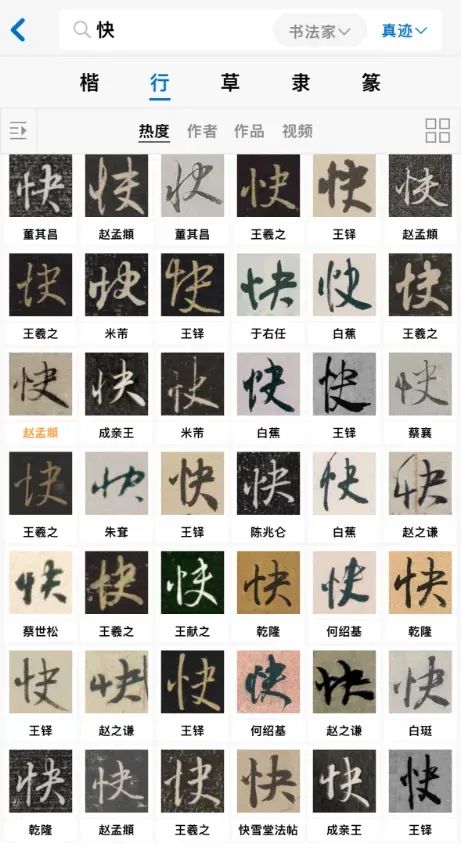 快 书法家 真迹
楷 行 草 隶 篆
热度 作者 作品 视频
快 快 快 快 快 快
董其昌 赵孟頫 董其昌 王羲之 王铎 赵孟頫
快 快 快 快 快 快
王羲之 米芾 王铎 于右任 白蕉 王羲之
快 快 快 快 快 快
赵孟頫 成亲王 米芾 白蕉 王铎 蔡襄
快 快 快 快 快 快
王羲之 朱耷 王铎 陈兆仑 白蕉 赵之谦
快 快 快 快 快 快
蔡世松 王羲之 王献之 乾隆 何绍基 乾隆
快 快 快 快 快 快
王铎 赵之谦 王铎 何绍基 赵之谦 白珽
快 快 快 快 快 快
乾隆 赵孟頫 王羲之 快雪堂法帖 成亲王 王铎